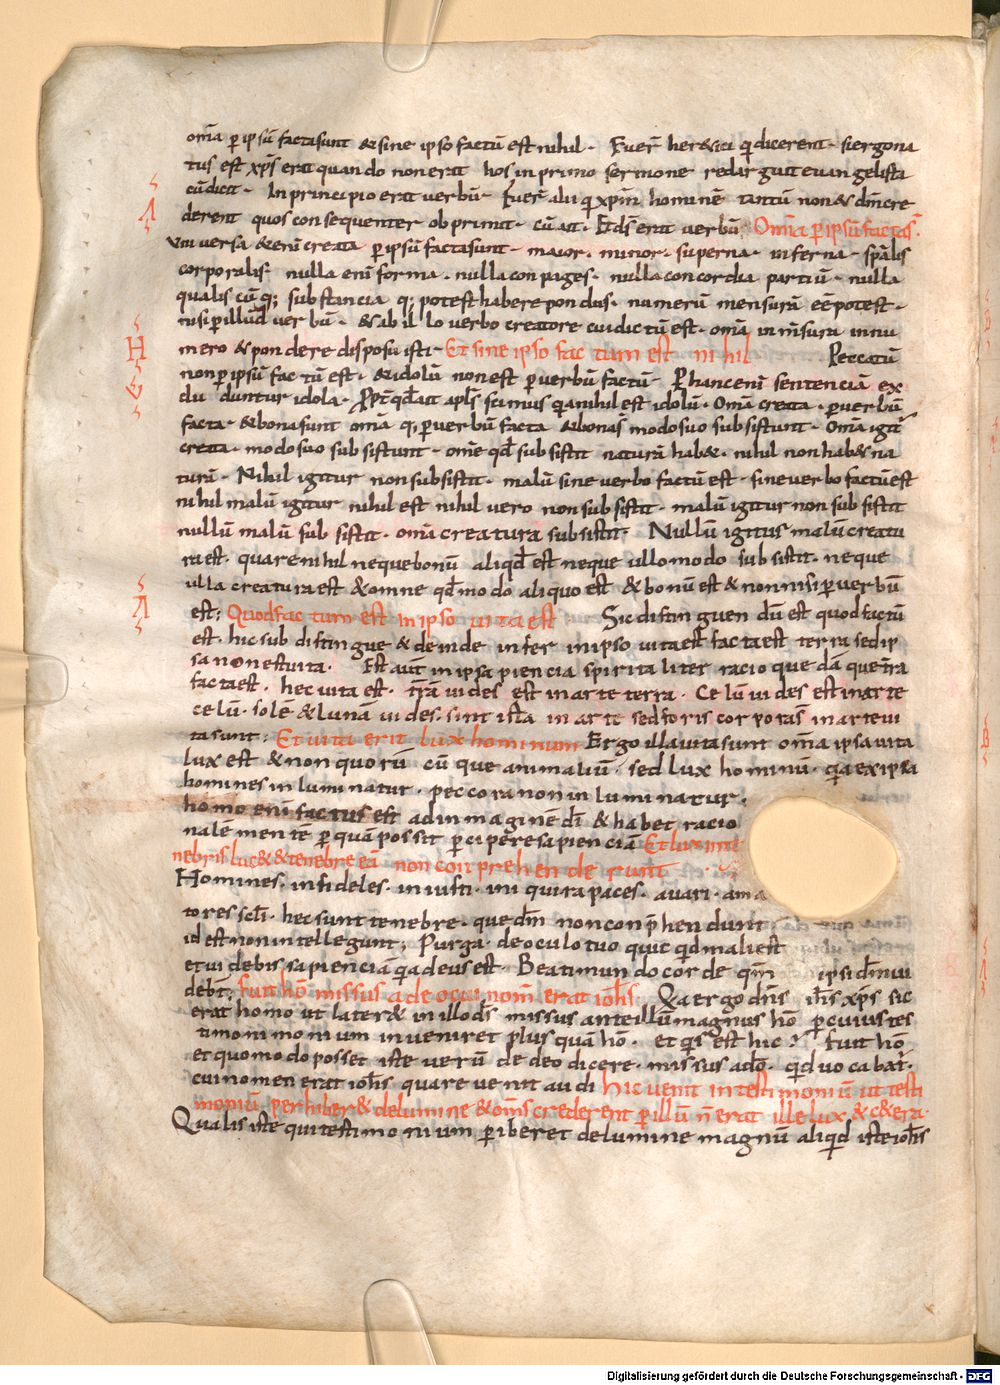 om̄a ꝑ ipsū factasunt &sine ipso factū est nihil · Fuer̄ her&ici q̇ dicerent · siergona
tus est xp̄s erat quando nonerat hos inprimo sermone redarguit euangelista
cūdicit · Inprincipio erat uerbū · Fuer̄ alii q̇ xp̄m hominē tantū non& dm̄cre
derent quos consequenter obprimit · cū ait · Etd̄s erat uerbū; Om̄a ꝑ ipsū factas̄ ·
Vniuersa &enī creata ꝑ ipsū factasunt · maior · minor · superna · inferna · sp̄alis
corporalis nulla enī forma · nulla conpages · nulla concordia partiū · nulla
qualis cū q; substancia q; potest habere pondus · numerū mensurā eēpotest ·
nisi ꝑ illūd uerbū · & ab illo uerbo creatore cui dictū est · om̄a in m̄sura innu
mero & pondere disposuisti · Et sine ipso factum est nihil Peccatū
non ꝑ ipsū factū est · & idolū non est ꝑ uerbū factū · Ꝑ hanc enī sentenciā ex
clu duntur idola · ꝓpt̄ qđ ait apl̄s scimus q̇a nihil est idolū · Om̄a creata · ꝑ uerbū
facta · & bona sunt om̄a q; ꝑ uerbū facta & bonas̄ modosuo subsistunt · Om̄a igit̄
creata · modosuo subsistunt · om̄e qđ subsistit naturā hab& · nihil non hab& na
turā · Nihil igitur non subsistit · malū sine uerbo factū est · sine uerbo factū est
nihil malū igitur nihil est nihil uero non subsistit · malū igitur non subsistit
nullū malū subsistit · om̄a creatura subsistit · Nullū igitur malū creatu
ra est · quare nihil neque bonū aliqđ est neque ullo modo subsistit · neque
ulla creatura est & omne qđ modo aliquo est & bonū est & non nisi ꝑ uerbū
est; Quod factum est in ipso uita est Sic distinguendū est quod factū
est · hic subdistingue & deinde infer in ipso uita est facta est terra sed ip
sa non est uita · Est aut̄ in ipsa piencia spiritaliter racio quedā que tr̄ra
facta est · hec uita est · tr̄rā uides est in arte terra · Celū uides est in arte
celū · solē & lunām uides · sunt ista in arte sed foris corporas̄ in arte ui
ta sunt; Et uita erit lux hominum Ergo illa uita sunt om̄a ipsa uita
lux est & non quorū cūque animaliū · sed lux hominū · q̇a ex ipsa
homines inluminatur · peccora non inluminatur ·
homo enī factus est ad imaginē dī & habet racio
nalē mente ꝑ quā possit ꝑcipere sapiencia Et lux inte
nebris luc& & tenebre eā non conprehenderunt
Homines · infideles · iniusti · ini qui rapaces · auari · ama
tores sc̄li · hec sunt tenebre · que dm̄ non conp̄hendunt
id est non intellegunt; Purga · de oculo tuo quic qđ mali est
et uidebis sapienciā q̇a deus est · Beati mundo corde qm̄ ipsi dm̄ ui
debt̄; fuit hō missus a deo cui nom̄ erat ioħs Q̇a ergo dn̄s ih̄s xp̄s sic
erat homo ut later& in illo d̄s missus ante illū magnus hō ꝑ cuius tes
timonimonium inueniret plus quā hō · et q̇s est hic? fuit hō
et quomodo posset iste uerū de deo dicere · missus a dō · q̇d uocabat̄ ·
cui nomen erat ioħs quare uenit audi hic uenit in testimoniū ut testi
moniū perhiber& de lumine & om̄s crederent ꝑ illū n̄ erat ille lux & c&era ·
Qualis iste qui testimonium ꝑiberet de lumine magnū aliqđ iste ioħs
Digitalisierung gefördert durch die Deutsche Forschungsgemeinschaft - DFG